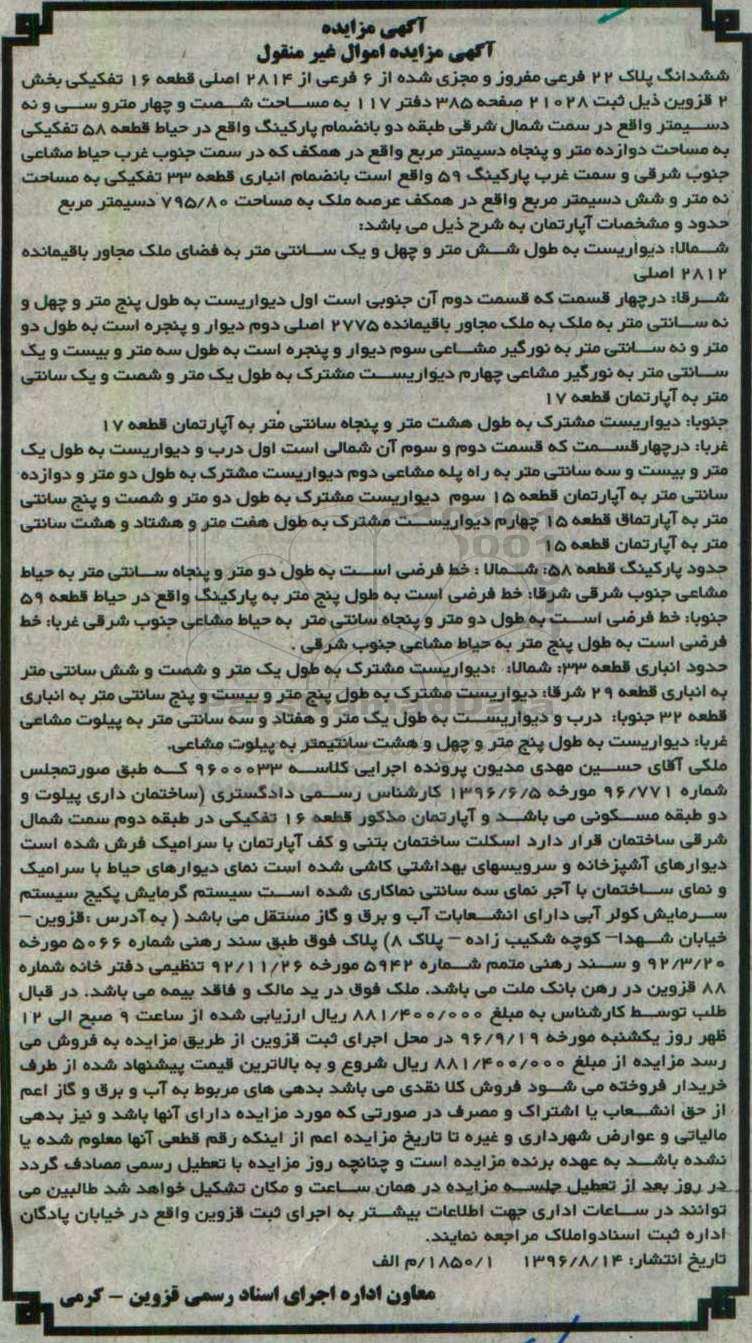 آگهی مزایده
آگهی مزایده اموال غیر منقول
ششدانگ پلاک ۲۲ فرعی مفروز و مجزی شده از ۶ فرعی از ۲۸۱۴ اصلی قطعه ۱۶ تفکیکی بخش
۲ قزوین ذیل ثبت ۲۱۰۲۸ صفحه ۳۸۵ دفتر ۱۱۷ به مساحت شصت و چهار مترو سی و نه
دسیمتر واقع در سمت شمال شرقی طبقه دو بانضمام پارکینگ واقع در حیاط قطعه ۵۸ تفکیکی
به مساحت دوازده متر و پنجاه دسیمتر مربع واقع در همکف که در سمت جنوب غرب حیاط مشاعی
جنوب شرقی و سمت غرب پارکینگ ۵۹ واقع است بانضمام انباری قطعه ۳۳ تفکیکی به مساحت
نه متر و شش دسیمتر مربع واقع در همکف عرصه ملک به مساحت ۷۹۵/۸۰ دسیمتر مربع
حدود و مشخصات آپارتمان به شرح ذیل می باشد:
شمالا: دیواریست به طول شش متر و چهل و یک سانتی متر به فضای ملک مجاور باقیمانده
۲۸۱۲ اصلی
شرقا: درچهار قسمت که قسمت دوم آن جنوبی است اول دیواریست به طول پنج متر و چهل و
نه سانتی متر به ملک به ملک مجاور باقیمانده ۲۷۷۵ اصلی دوم دیوار و پنجره است به طول دو
متر و نه سانتی متر به نورگیر مشاعی سوم دیوار و پنجره است به طول سه متر و بیست و یک
سانتی متر به نورگیر مشاعی چهارم دیواریست مشترک به طول یک متر و شصت و یک سانتی
متر به آپارتمان قطعه ۱۷
جنوبا: دیواریست مشترک به طول هشت متر و پنجاه سانتی متر به آپارتمان قطعه ۱۷
غربا: درچهارقسمت که قسمت دوم و سوم آن شمالی است اول درب و دیواریست به طول یک
متر و بیست و سه سانتی متر به راه پله مشاعی دوم دیواریست مشترک به طول دو متر و دوازده
سانتی متر به آپارتمان قطعه ۱۵ سوم دیواریست مشترک به طول دو متر و شصت و پنج سانتی
متر به آپارتماق قطعه ۱۵ چهارم دیواریست مشترک به طول هفت متر و هشتاد و هشت سانتی
متر به آپارتمان قطعه ۱۵
حدود پارکینگ قطعه ۵۸: شمالا : خط فرضی است به طول دو متر و پنجاه سانتی متر به حیاط
مشاعی جنوب شرقی شرقا: خط فرضی است به طول پنج متر به پارکینگ واقع در حیاط قطعه ۵۹
جنوبا: خط فرضی است به طول دو متر و پنجاه سانتی متر به حیاط مشاعی جنوب شرقی غربا: خط
فرضی است به طول پنج متر به حیاط مشاعی جنوب شرقی .
حدود انباری قطعه ۳۳: شمالا: :دیواریست مشترک به طول یک متر و شصت و شش سانتی متر
به انباری قطعه ۲۹ شرقا: دیواریست مشترک به طول پنج متر و بیست و پنج سانتی متر به انباری
قطعه ۳۲ جنوبا: درب و دیواریست به طول یک متر و هفتاد و سه سانتی متر به پیلوت مشاعی
غربا: دیواریست به طول پنج متر و چهل و هشت سانتیمتر به پیلوت مشاعی.
ملکی آقای حسین مهدی مدیون پرونده اجرایی کلاسه ۹۶۰۰۰۳۳ که طبق صورتمجلس
شماره ۹۶/۷۷۱ مورخه ۱۳۹۶/۶/۵ کارشناس رسمی دادگستری (ساختمان داری پیلوت و
دو طبقه مسکونی می باشد و آپارتمان مذکور قطعه ۱۶ تفکیکی در طبقه دوم سمت شمال
شرقی ساختمان قرار دارد اسکلت ساختمان بتنی و کف آپارتمان با سرامیک فرش شده است
دیوارهای آشپزخانه و سرویسهای بهداشتی کاشی شده است نمای دیوارهای حیاط با سرامیک
و نمای ساختمان با آجر نمای سه سانتی نماکاری شده است سیستم گرمایش پکیج سیستم
سرمایش کولر آبی دارای انشعابات آب و برق و گاز مستقل می باشد ( به آدرس :قزوین –
خیابان شهدا– کوچه شکیب زاده – پلاک ۸) پلاک فوق طبق سند رهنی شماره ۵۰۶۶ مورخه
۹۲/۳/۲۰ و سند رهنی متمم شماره ۵۹۴۲ مورخه ۹۲/۱۱/۲۶ تنظیمی دفتر خانه شماره
۸۸ قزوین در رهن بانک ملت می باشد. ملک فوق در ید مالک و فاقد بیمه می باشد. در قبال
طلب توسط کارشناس به مبلغ ۸۸۱/۴۰۰/۰۰۰ ریال ارزیابی شده از ساعت ۹ صبح الی ۱۲
ظهر روز یکشنبه مورخه ۹۶/۹/۱۹ در محل اجرای ثبت قزوین از طریق مزایده به فروش می
رسد مزایده از مبلغ ۸۸۱/۴۰۰/۰۰۰ ریال شروع و به بالاترین قیمت پیشنهاد شده از طرف
خریدار فروخته می شود فروش کلا نقدی می باشد بدهی های مربوط به آب و برق و گاز اعم
از حق انشعاب یا اشتراک و مصرف در صورتی که مورد مزایده دارای آنها باشد و نیز بدهی
مالیاتی و عوارض شهرداری و غیره تا تاریخ مزایده اعم از اینکه رقم قطعی آنها معلوم شده یا
نشده باشد به عهده برنده مزایده است و چنانچه روز مزایده با تعطیل رسمی مصادف گردد
در روز بعد از تعطیل جلسه مزایده در همان ساعت و مکان تشکیل خواهد شد طالبین می
توانند در ساعات اداری جهت اطلاعات بیشتر به اجرای ثبت قزوین واقع در خیابان پادگان
اداره ثبت اسنادواملاک مراجعه نمایند.
تاریخ انتشار: ۱۳۹۶/۸/۱۴ ۱۸۵۰/۱/م الف
معاون اداره اجرای اسناد رسمی قزوین – کرمی